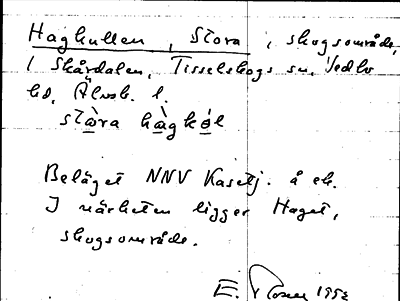 Haghullen, Stora, skogsområde,
i Skårdalen, Tisselskogs sn, Vedbo
hd, Älvsb. l.
stɷ̀ra hàgkɵ́l
Beläget NNV Kasetj. å ek.
I närheten ligger Haget,
skogsområde.
E. 1992